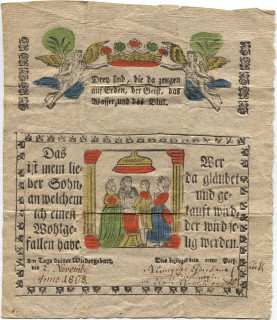 Drey sind, die da zeugen
auf Erden, der Geist, das
Wasser, und das Blut.
Das
ist mein lie-
ber Sohn,
an welchem
ich einen
Wohlge-
fallen habe.
Wer
da gläubet
und ge-
tauft wird,
der wird se-
lig werden.
Am Tage deiner Wiedergeburt,
den 2. November
Anno 1808
Dies bezeuget dein